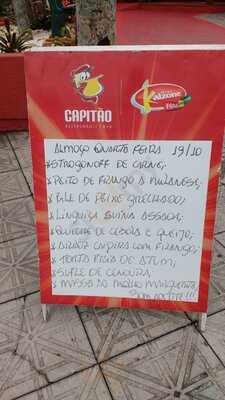 CAPITÃO
Kalzone
ALMOÇO QUARTA FEIRA 19/10
*STROGONOFF DE CARNE;
*PEITO DE FRANGO A MILANESA;
*FILE DE PEIXE GRELHADO;
*LINGUIÇA SUÍNA ASSADA;
*QUICHE DE CEBOLA E QUEIJO;
*BATATA CAIPIRA COM FRANGO;
*TORTA FRIA DE ATUM;
*SUFLE DE CENOURA
*MASSA AO MOLHO MARGUERITA;
BOM APETITE!!!